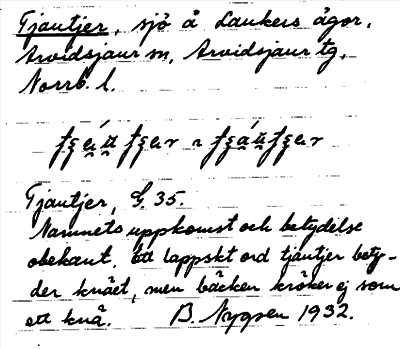 Tjautjer, sjö å Laukers ägor,
Arvidsjaur sn, Arvidsjaur tg,
Norrb. l.
Tjautjer, G. 35.
Namnets uppkomst och betydelse
obekant. Ett lappskt ord tjautjer bety-
der knäet, men bäcken kröker ej som
ett knä. B. Nygren 1932.